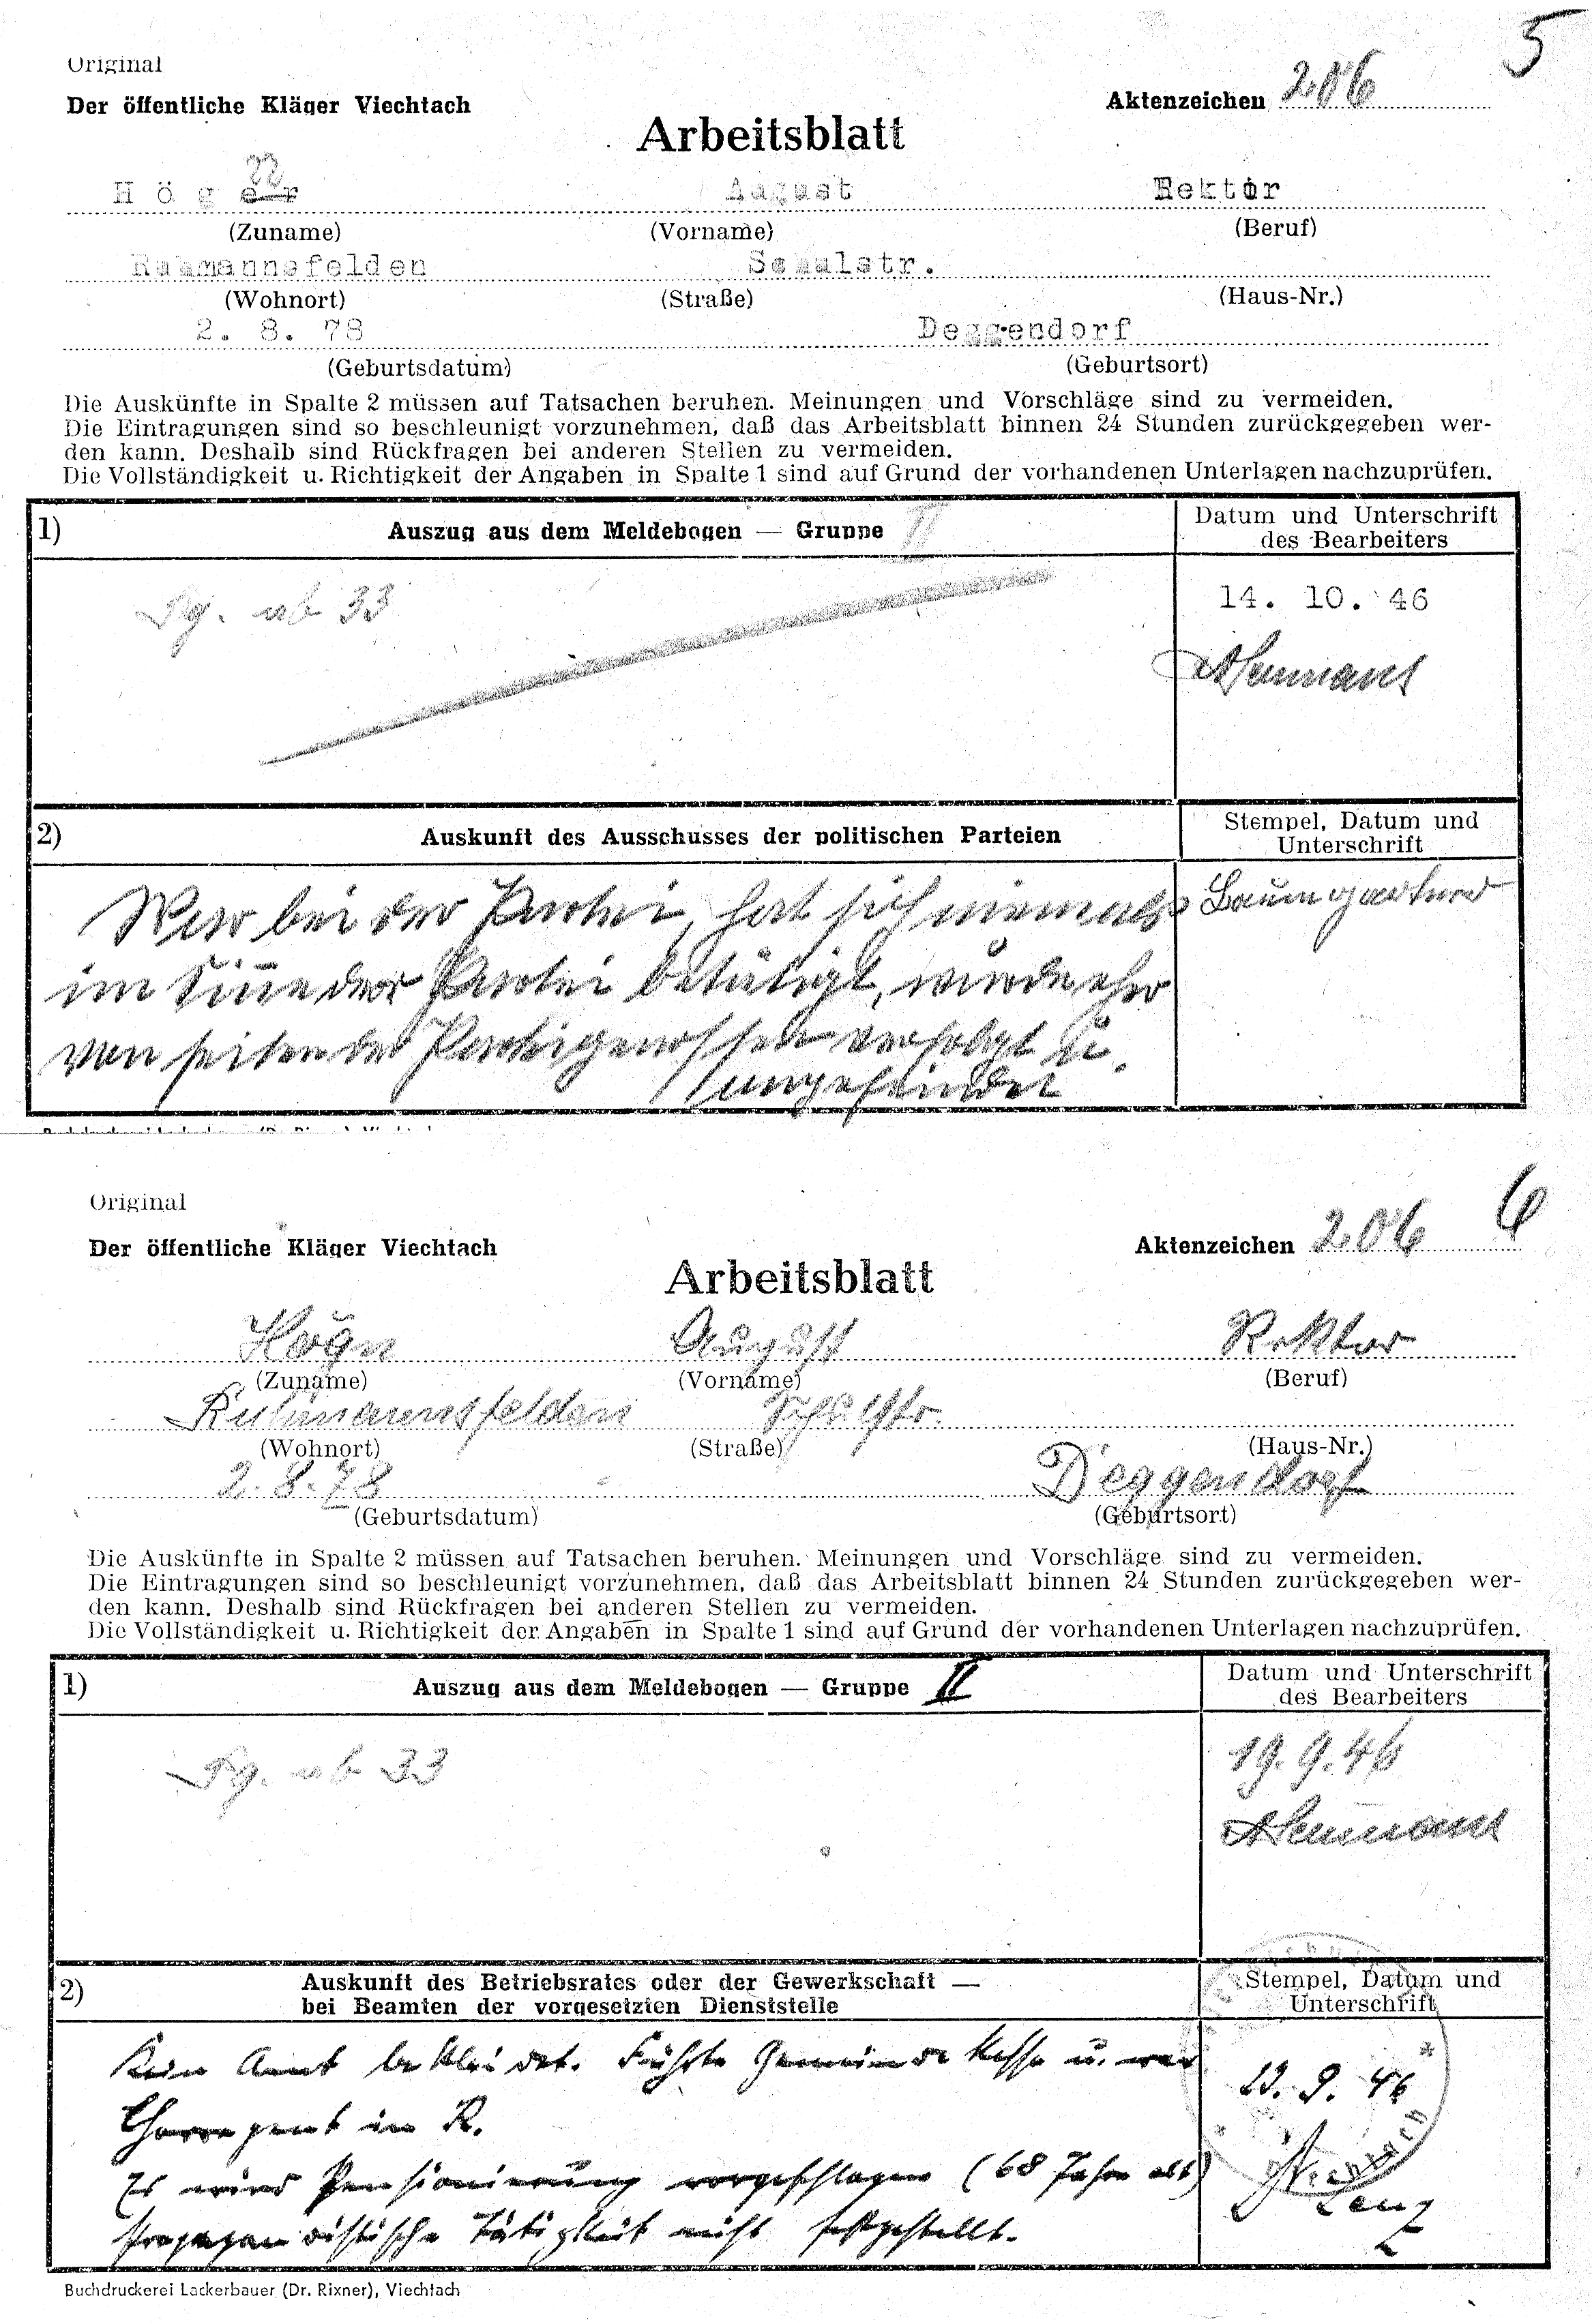 5
Original
Der öffentliche Kläger Viechtach
Aktenzeichen 206
Arbeitsblatt
Höger August Rektor
(Zuname) (Vorname) (Beruf)
Ruhmannsfelden Schulstr.
(Wohnort) (Straße) (Haus-Nr.)
2. 8. 78 Deggendorf
(Geburtsdatum) (Geburtsort)
Die Auskünfte in Spalte 2 müssen auf Tatsachen beruhen. Meinungen und Vorschläge sind zu vermeiden.
Die Eintragungen sind so beschleunigt vorzunehmen, daß das Arbeitsblatt binnen 24 Stunden zurückgegeben wer-
den kann. Deshalb sind Rückfragen bei anderen Stellen zu vermeiden.
Die Vollständigkeit u. Richtigkeit der Angaben in Spalte 1 sind auf Grund der vorhandenen Unterlagen nachzuprüfen.
1) Auszug aus dem Meldebogen — Gruppe II
Datum und Unterschrift
des Bearbeiters
Pg. ab 33
14. 10. 46
2) Auskunft des Ausschusses der politischen Parteien
Stempel, Datum und
Unterschrift
War bei der Partei, hat sich niemals
Baumgartner
im Sinne der Partei betätigt, wurde eher
von seiten der Parteigenossen verfolgt u.
angefeindet
6
Original
Der öffentliche Kläger Viechtach
Aktenzeichen 206
Arbeitsblatt
Högn August Rektor
(Zuname) (Vorname) (Beruf)
Ruhmannsfelden Schulstr.
(Wohnort) (Straße) (Haus-Nr.)
2. 8. 78 Deggendorf
(Geburtsdatum) (Geburtsort)
Die Auskünfte in Spalte 2 müssen auf Tatsachen beruhen. Meinungen und Vorschläge sind zu vermeiden.
Die Eintragungen sind so beschleunigt vorzunehmen, daß das Arbeitsblatt binnen 24 Stunden zurückgegeben wer-
den kann. Deshalb sind Rückfragen bei anderen Stellen zu vermeiden.
Die Vollständigkeit u. Richtigkeit der Angaben in Spalte 1 sind auf Grund der vorhandenen Unterlagen nachzuprüfen.
1) Auszug aus dem Meldebogen — Gruppe II
Datum und Unterschrift
des Bearbeiters
Pg. ab 33
19. 9. 46
2) Auskunft des Betriebsrates oder der Gewerkschaft —
bei Beamten der vorgesetzten Dienststelle
Stempel, Datum und
Unterschrift
Kein Amt bekleidet. Führte Gemeindekasse u. war
23. 9. 46
Chorregent in R.
Es wird Pensionierung vorgeschlagen (68 Jahre alt)
Propagandistische Tätigkeit nicht festgestellt.
Lenz
Buchdruckerei Lackerbauer (Dr. Rixner), Viechtach